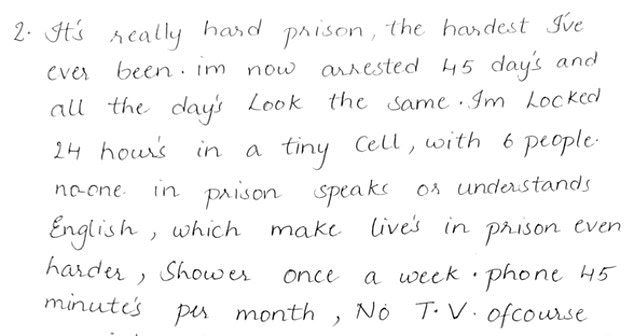 2. It's really hard prison, the hardest I've
ever been. im now arrested 45 day's and
all the day's Look the same. Im Locked
24 hour's in a tiny cell, with 6 people.
no-one in prison speaks or understands
English, which make live's in prison even
harder, Shower once a week. phone 45
minute's per month, No T.V. ofcourse